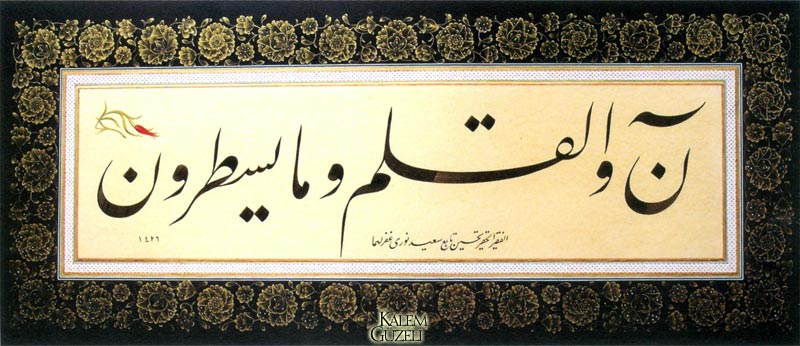 ن والقلم وما يسطرون
الفقير الحقير تحسين تابع سعيد نوری غفرلهما
١٤٢٦
KALEM
GÜZELİ